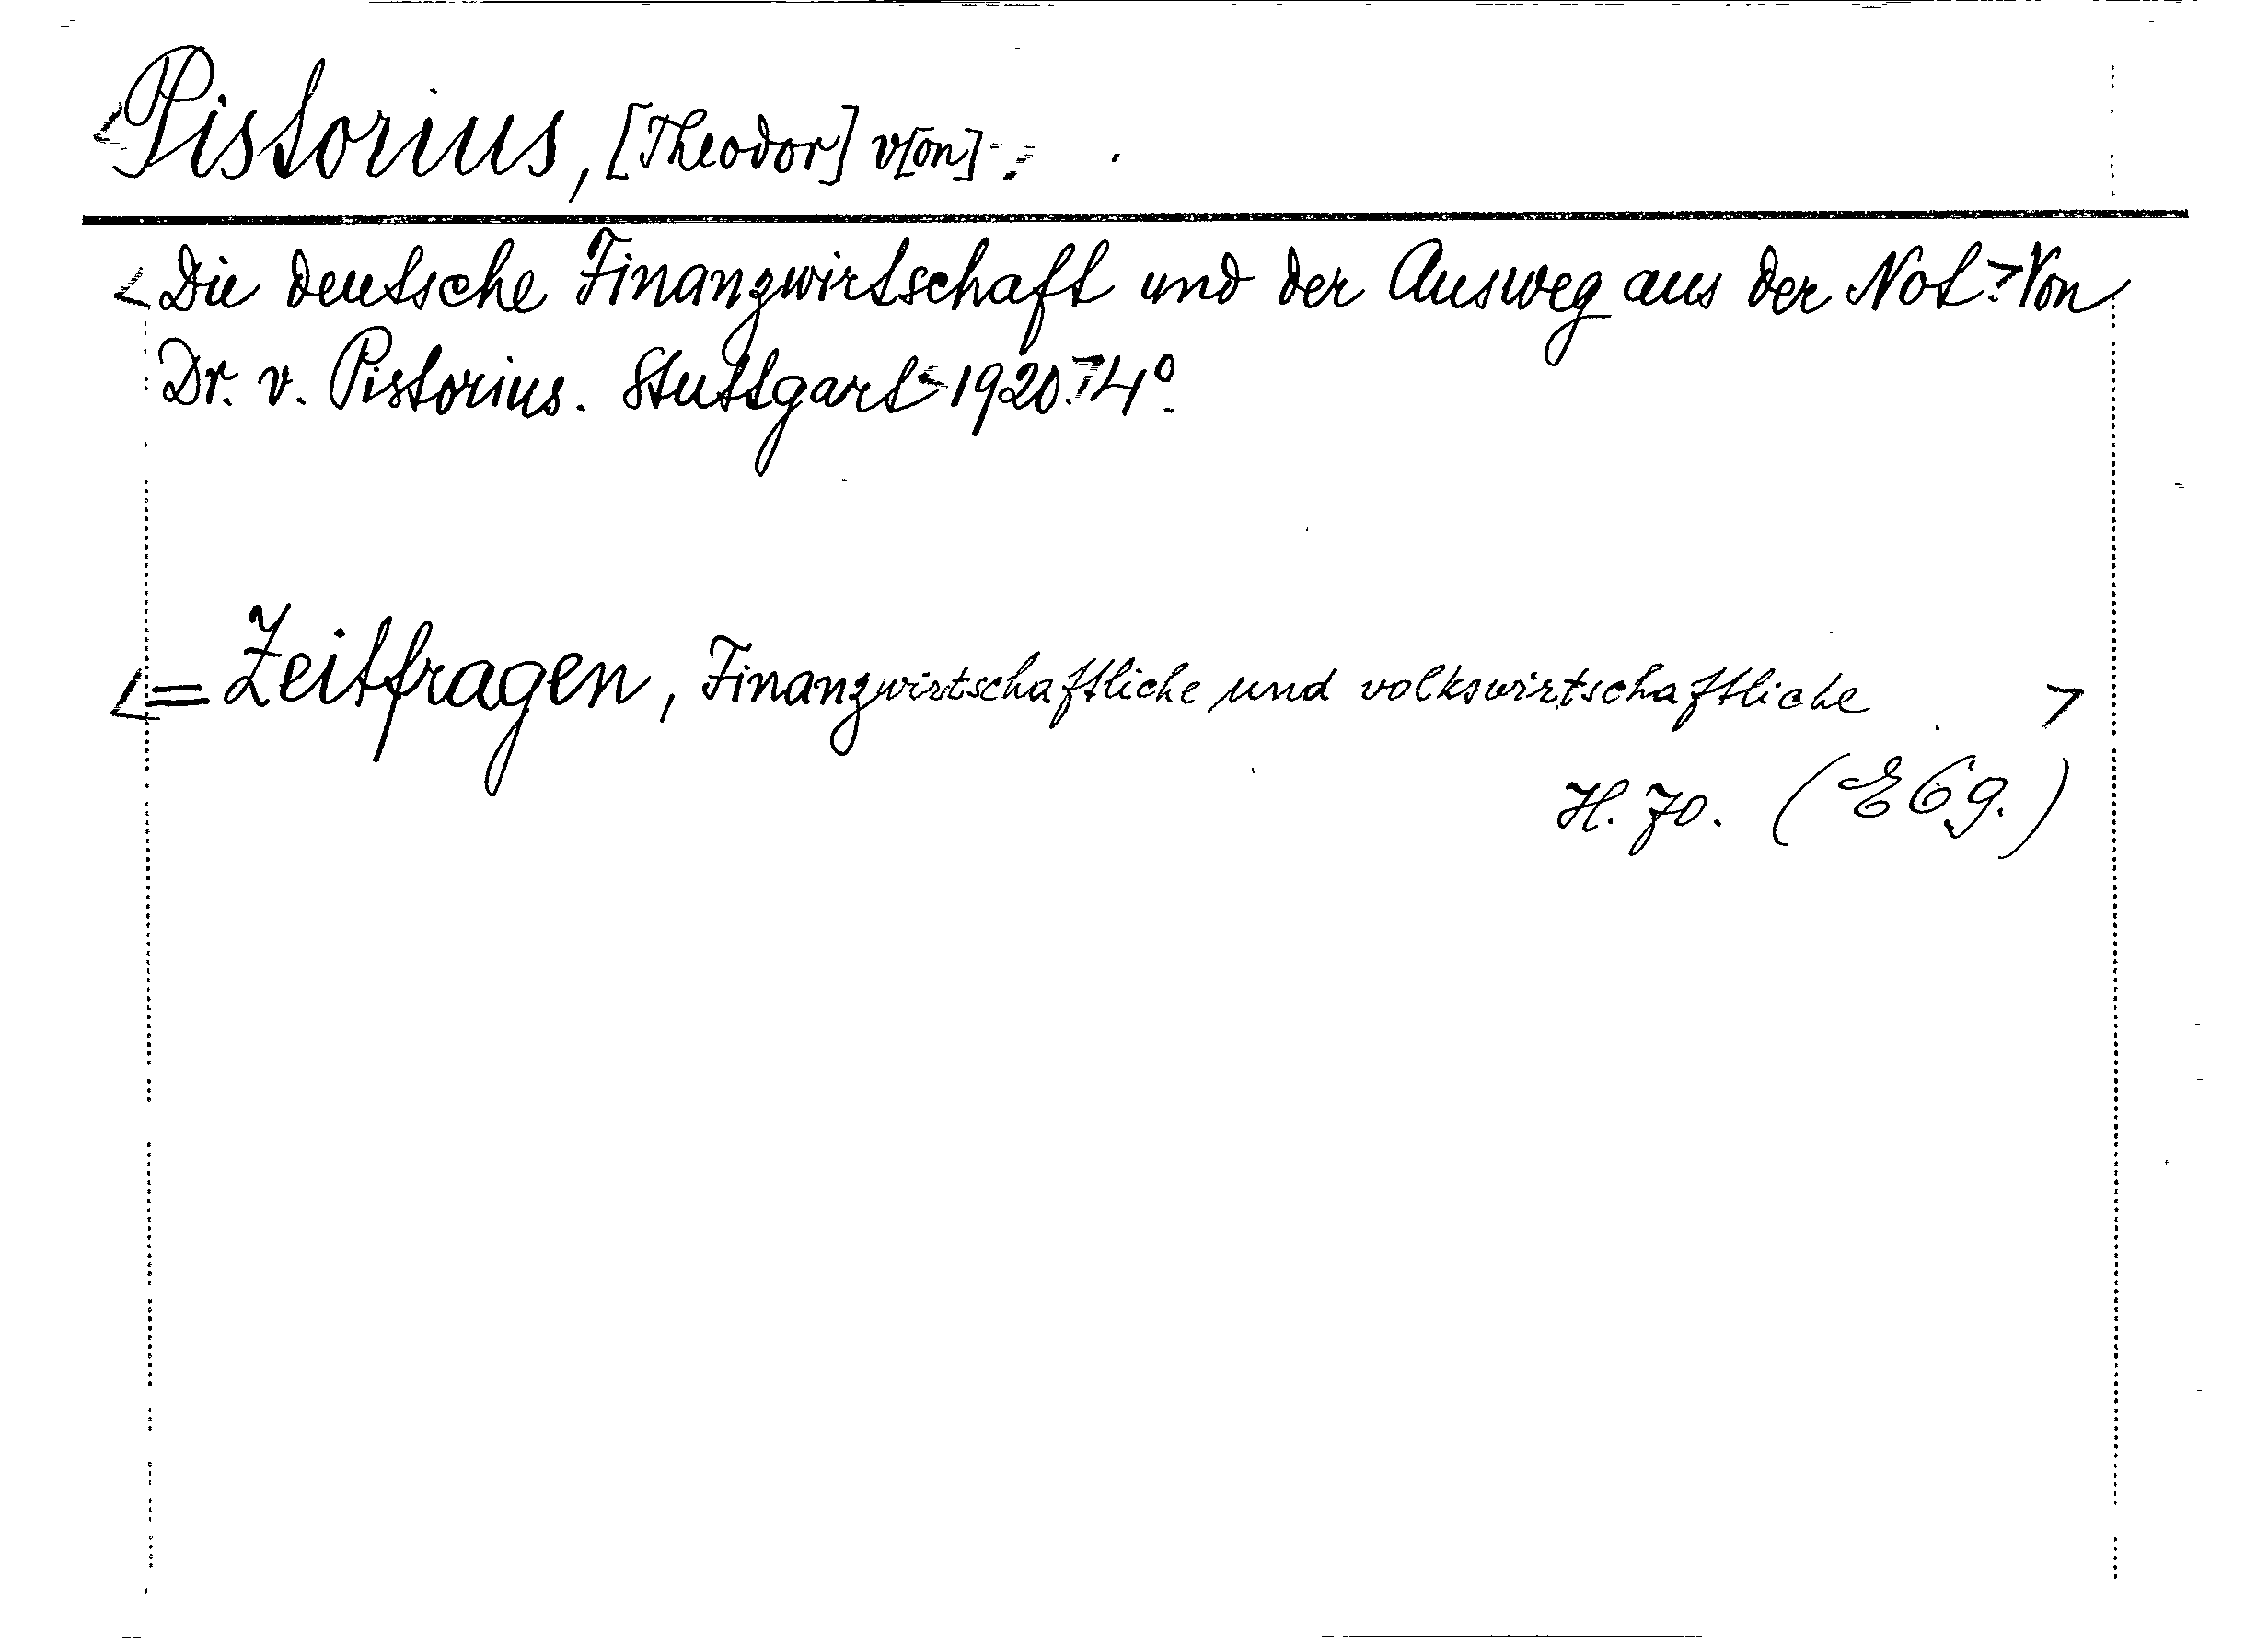 <Pistorius, [Theodor] v[on]:>
<Die deutsche Finanzwirtschaft und der Ausweg aus der Not.> Von
Dr. v. Pistorius. Stuttgart <1920.> 4º.
<= Zeitfragen, Finanzwirtschaftliche und volkswirtschaftliche >
H. 70. (E 69.)